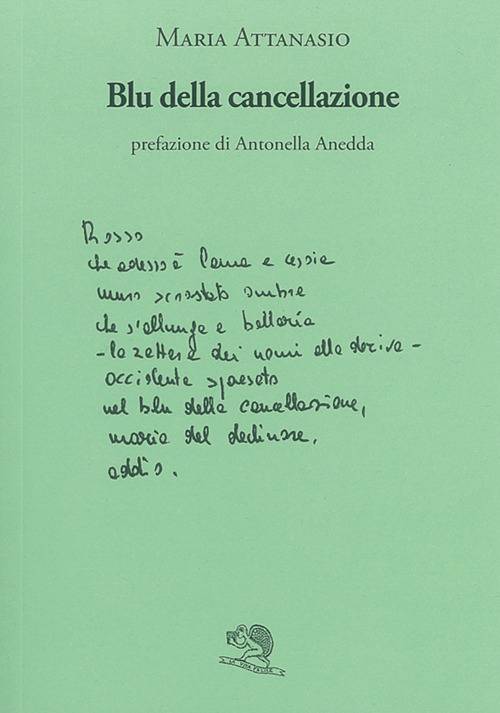 MARIA ATTANASIO
Blu della cancellazione
prefazione di Antonella Anedda
Rosso
che adesso è lama e cessia
muro scrostato ombre
che s'allunga e battaria
- la zattera dei nomi alla deriva -
occidente spaesato
nel blu della cancellazione,
marcia del declinare,
addio.
LA VITA FELICE